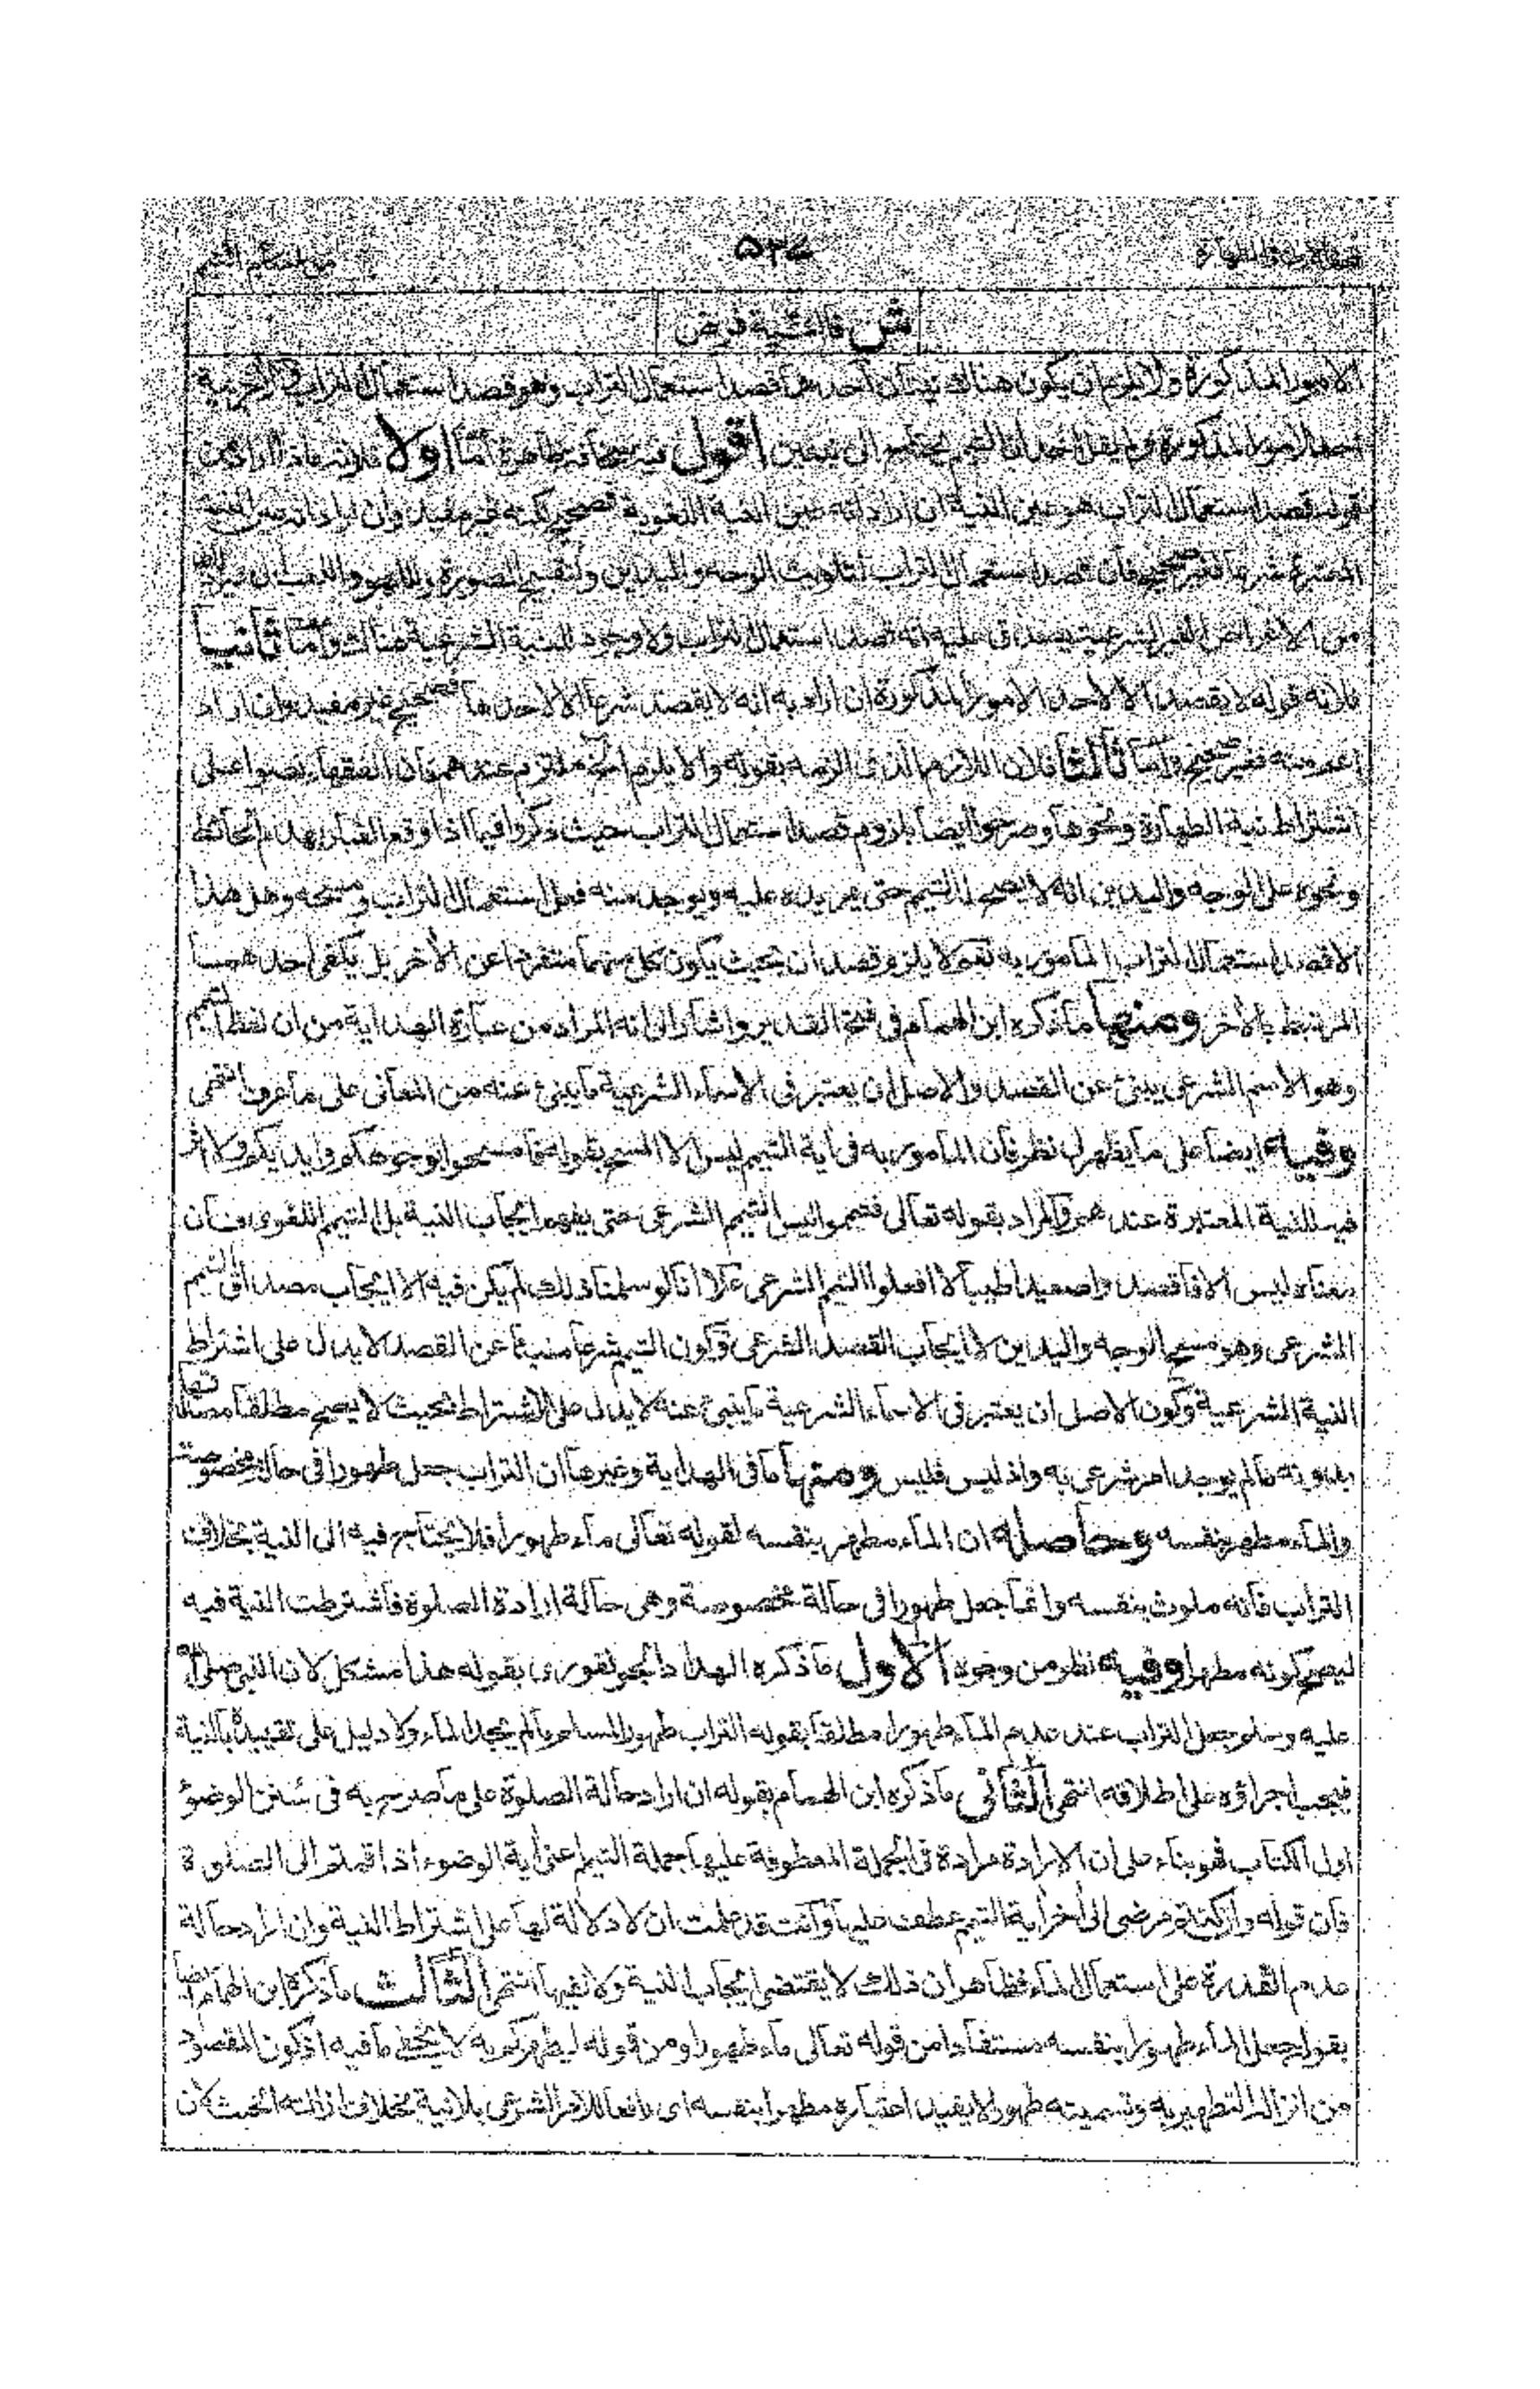 ۵۳۷
ش فالنية فرض
الامور المذكورة ولا يلزم ان يكون هناك نيتان احدهما قصد استعمال التراب وهو قصد استعمال التراب
احد الامور المذكورة ولم يقل احد ان التيمم يحتاج الى نيتين اقول فيه سخافة ظاهرة اما اولا فلانه
قوله قصد استعمال التراب هو عين النية ان اراد انه عين النية اللغوية فصحيح لكنه غير مفيد وان اراد انه عين النية
المعتبرة شرعا فغير صحيح فان قصد استعمال التراب لتلويث الوجه واليدين وتقبيح الصورة واللهو واللعب
من الاغراض الغير الشرعية يصدق عليه انه قصد استعمال التراب ولا وجود للنية الشرعية هناك واما ثانيا
فلانه قوله لا يقصد الا لاحد الامور المذكورة ان اراد به انه لا يقصد شرعا الا لاحدها فصحيح غير مفيد وان اراد
اعم منه فغير صحيح واما ثالثا فلان اللازم الذي الزمه بقوله والا يلزم الخ ملتزم عندهم فان الفقهاء نصوا على
اشتراط نية الطهارة ونحوها وصرحوا ايضا بلزوم قصد استعمال التراب حيث ذكروا فيما اذا وقع الغبار بهدم الحائط
ونحوه على الوجه واليدين انه لا يصح التيمم حتى يمر يده عليه ويوجد منه فعل استعمال التراب ومسحه وهل هذا
الا قصد استعمال التراب المامور به نعم لا يلزم قصدان بحيث يكون كل منهما متفردا عن الآخر بل يكفى احدهما
المرتبط بالآخر ومنها ما ذكره ابن الهمام فى فتح القدير واشار الى انه المراد من عبارة الهداية من ان لفظ التيمم
وهو الاسم الشرعى ينبئ عن القصد والاصل ان يعتبر فى الاسماء الشرعية ما ينبئ عنه من المعانى على ما عرف انتهى
وفيه ايضا على ما يظهر لى نظر فان المامور به فى آية التيمم ليس الا المسح بقوله فامسحوا بوجوهكم وايديكم ولا اثر
فيه للنية المعتبرة عندهم والمراد بقوله تعالى فتيمموا ليس التيمم الشرعى حتى يفهم ايجاب النية بل التيمم اللغوى فان
معناه ليس الا فاقصدوا صعيدا طيبا لا افعلوا التيمم الشرعى علا انا لو سلمنا ذلك لم يكن فيه الا ايجاب مصداق التيمم
الشرعى وهو مسح الوجه واليدين لا ايجاب القصد الشرعى وكون التيمم شرعا منبئا عن القصد لا يدل على اشتراط
النية الشرعية وكون الاصل ان يعتبر فى الاسماء الشرعية ما ينبئ عنه لا يدل على الاشتراط بحيث لا يصح مطلقا
بدونه ما لم يوجد امر شرعى به واذ ليس فليس ومنها ما فى الهداية وغيرها ان التراب جعل طهورا فى حالة مخصوصة
والماء مطهر بنفسه وحاصله ان الماء مطهر بنفسه لقوله تعالى ماء طهورا فلا يحتاج فيه الى النية بخلاف
التراب فانه ملوث بنفسه وانما جعل طهورا فى حالة مخصوصة وهى حالة ارادة الصلوة فاشترطت النية فيه
ليصح كونه مطهرا وفيه نظر من وجوه الاول ما ذكره الهداد الجونفورى بقوله هذا مشكل لان النبى صلى الله
عليه وسلم جعل التراب عند عدم الماء طهورا مطلقا بقوله التراب طهور المسلم ما لم يجد الماء ولا دليل على تقييده بالنية
فيجب اجراؤه على اطلاقه انتهى الثانى ما ذكره ابن الهمام بقوله ان اراد حالة الصلوة على ما صرح به فى سنن الوضوء
اول الكتاب فهو بناء على ان الارادة مرادة فى الجملة المعطوفة عليها جملة التيمم اعنى آية الوضوء اذا قمتم الى الصلوة
فان قوله وان كنتم مرضى الى آخر آية التيمم عطف عليها وانت قد علمت ان لا دلالة لها على اشتراط النية وان اراد حالة
عدم القدرة على استعمال الماء فظاهر ان ذلك لا يقتضى ايجاب النية ولا نفيها انتهى الثالث ما ذكره ابن الهمام ايضا
بقوله جعل الماء طهورا بنفسه مستفادا من قوله تعالى ماء طهورا ومن قوله ليطهركم به لا يخفى ما فيه اذ كون المقصود
من انزاله التطهير به وتسميته طهورا لا يفيد اعتباره مطهرا بنفسه اى رافعا للامر الشرعى بلا نية بخلاف ازالته الخبث لان